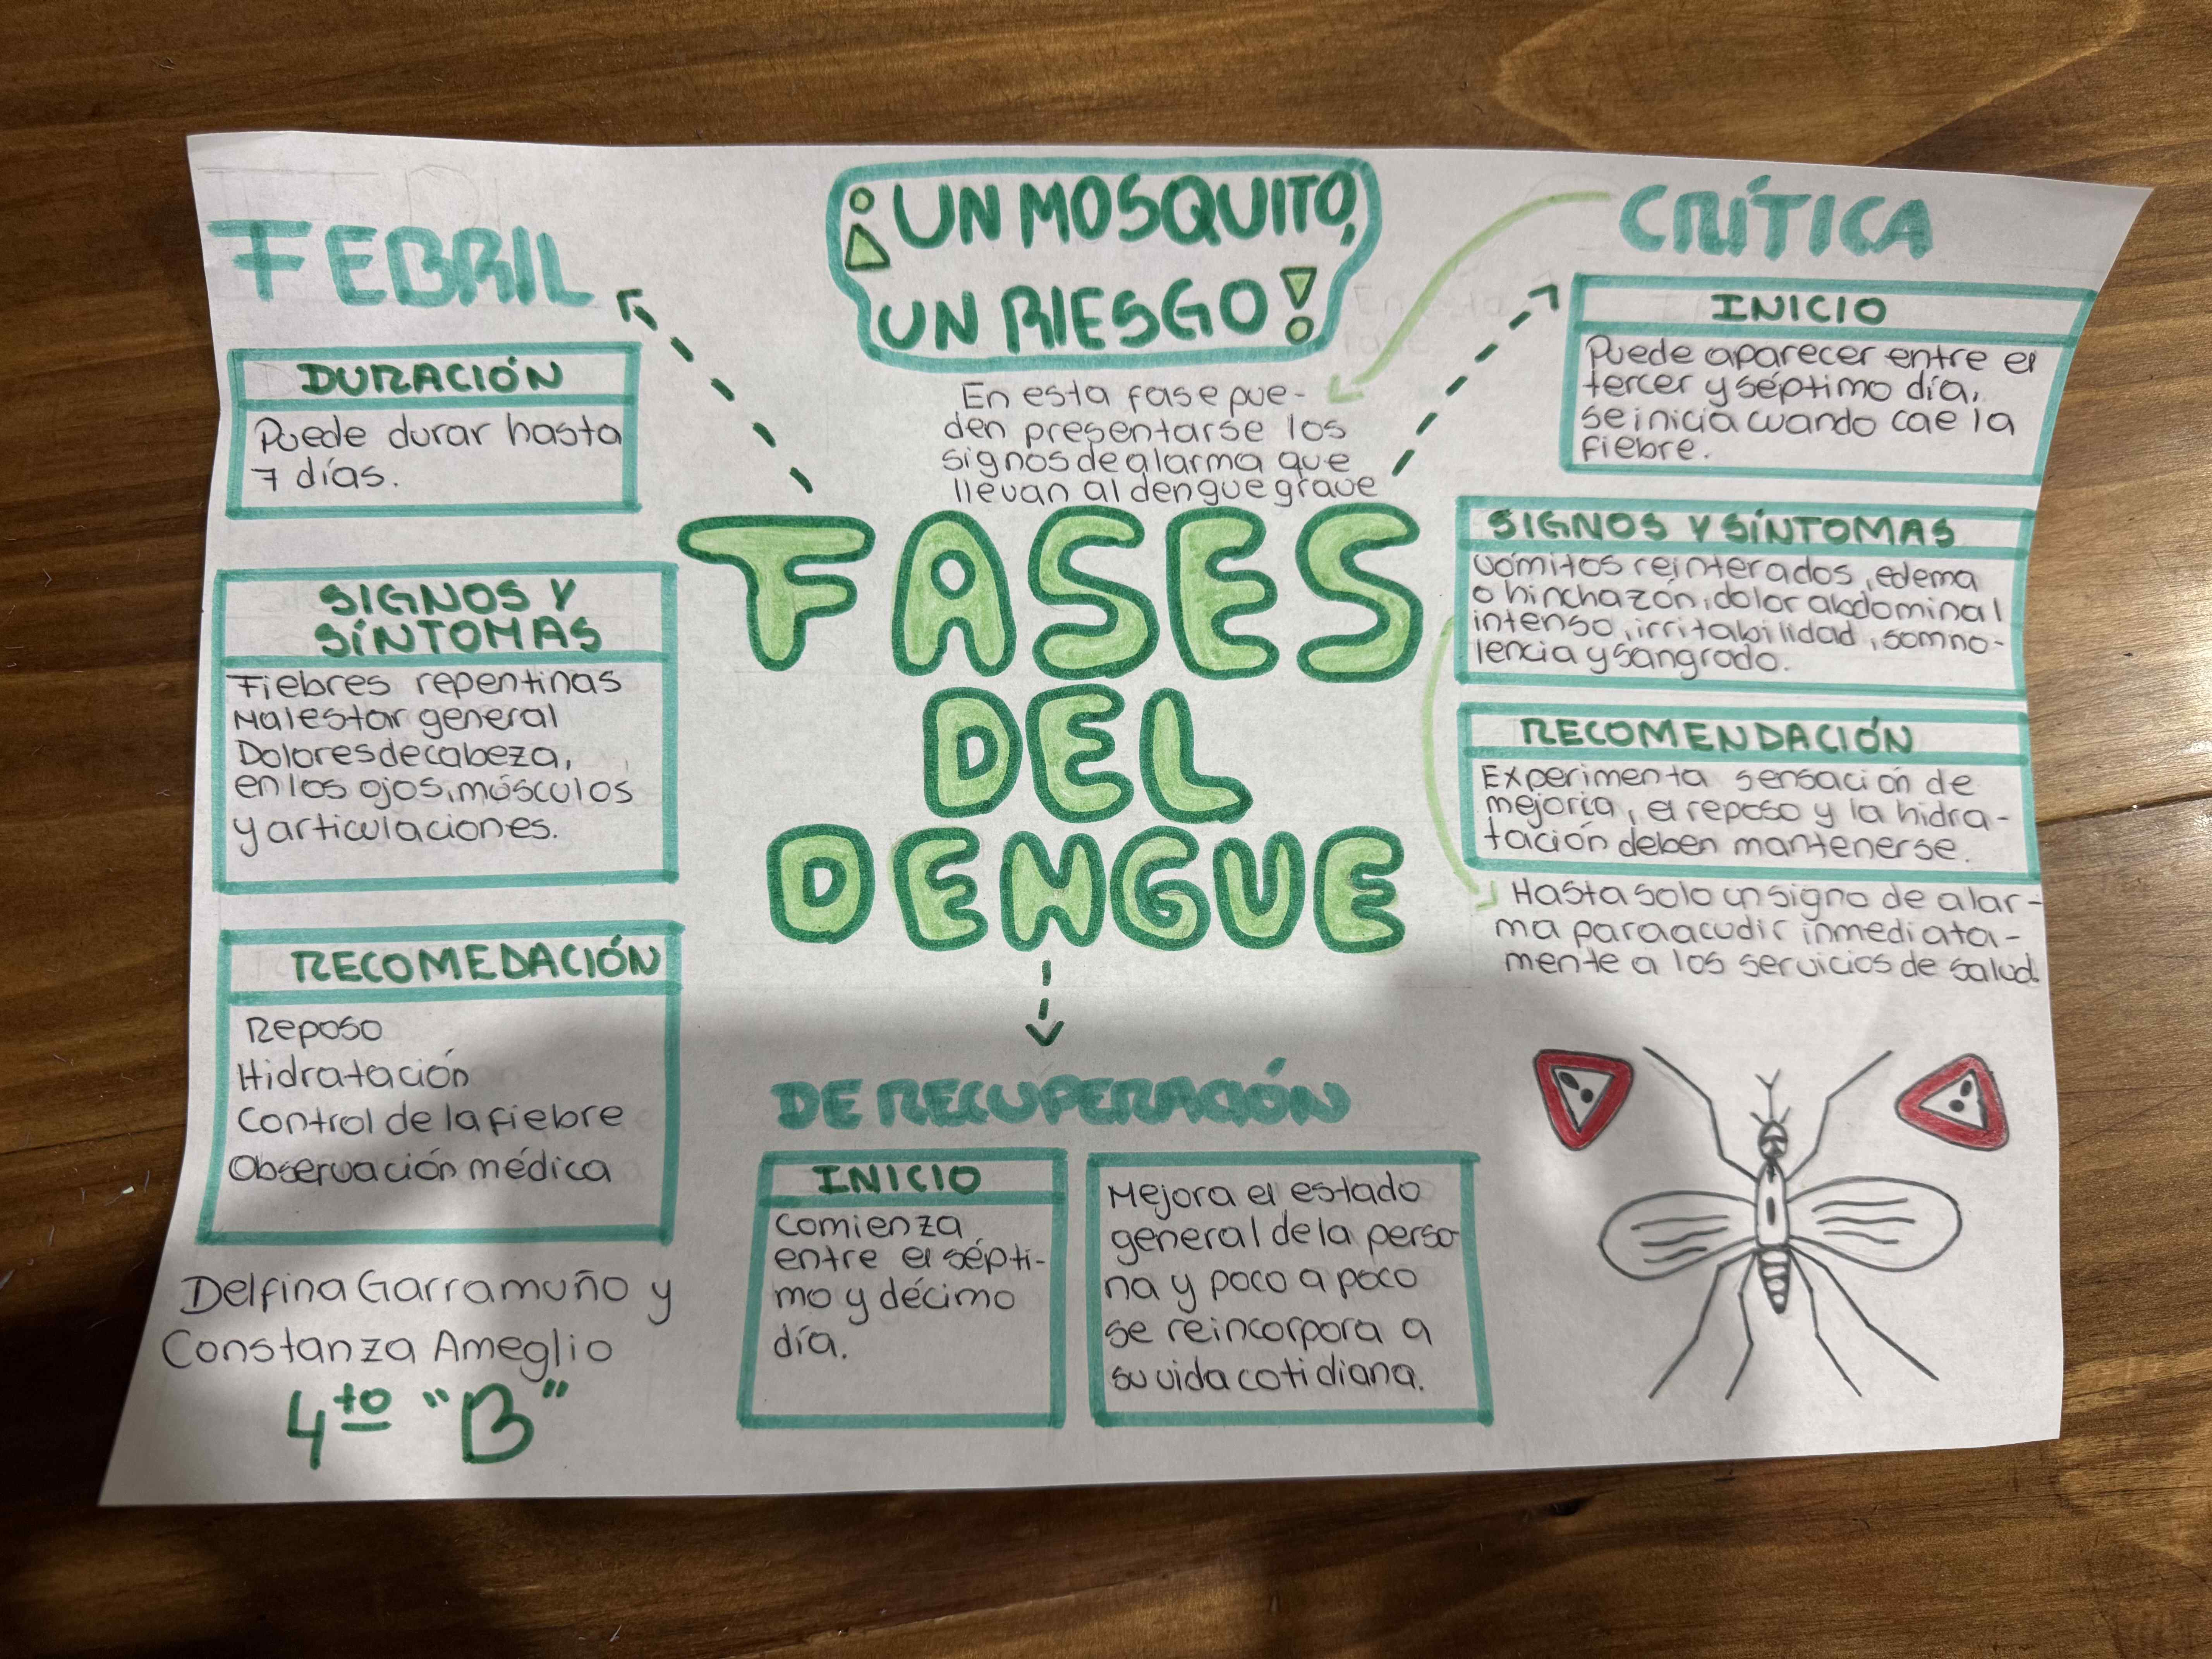 ¡UN MOSQUITO,
UN RIESGO!
FEBRIL
DURACIÓN
Puede durar hasta
7 días.
SIGNOS Y
SÍNTOMAS
Fiebres repentinas
Malestar general
Dolores de cabeza,
en los ojos, músculos
y articulaciones.
RECOMEDACIÓN
Reposo
Hidratación
Control de la fiebre
Observación médica
Delfina Garramuño y
Constanza Ameglio
4to "B"
En esta fase pue-
den presentarse los
signos de alarma que
llevan al dengue grave
FASES
DEL
DENGUE
CRÍTICA
INICIO
Puede aparecer entre el
tercer y séptimo día,
se inicia cuando cae la
fiebre.
SIGNOS Y SÍNTOMAS
Vómitos reinterados, edema
o hinchazón, dolor abdominal
intenso, irritabilidad, somno-
lencia y sangrado.
RECOMENDACIÓN
Experimenta sensación de
mejoría, el reposo y la hidra-
tación deben mantenerse.
Hasta solo un signo de alar-
ma para acudir inmediata-
mente a los servicios de salud.
DE RECUPERACIÓN
INICIO
Comienza
entre el sépti-
mo y décimo
día.
Mejora el estado
general de la perso-
na y poco a poco
se reincorpora a
su vida cotidiana.